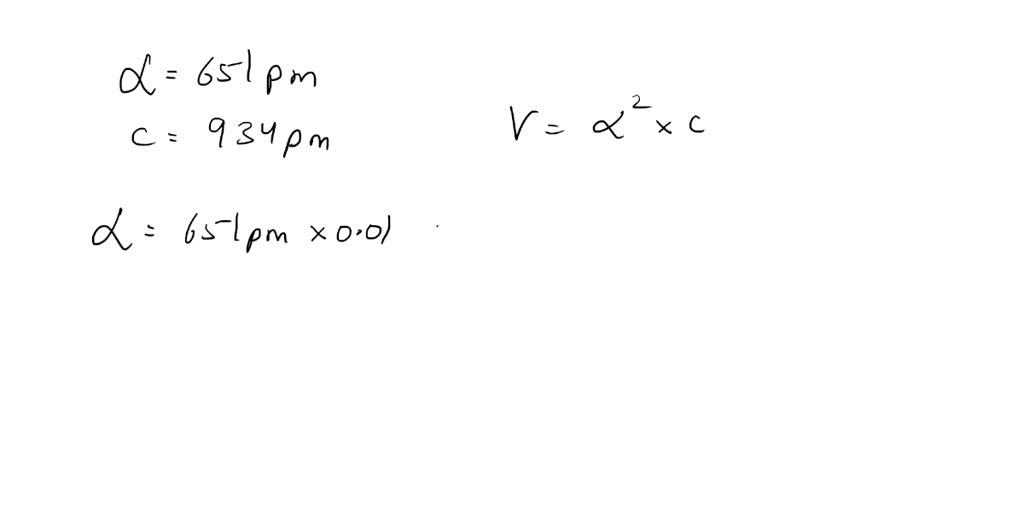 α = 651 pm
c = 934 pm
V = α² × c
α = 651 pm × 0.01